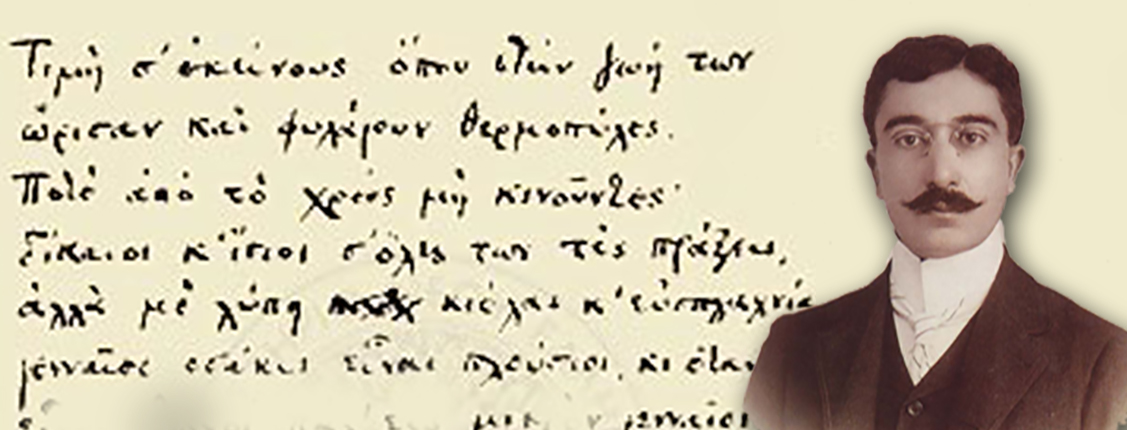 Τιμὴ σ' ἐκείνους ὅπου στὴν ζωή των
ὥρισαν καὶ φυλάγουν Θερμοπύλες.
Ποτὲ ἀπὸ τὸ χρέος μὴ κινοῦντες·
δίκαιοι κ' ἴσιοι σ' ὅλες των τὲς πράξεις,
ἀλλὰ μὲ λύπη κιόλας κ' εὐσπλαχνία
γενναῖοι ὁσάκις εἶναι πλούσιοι, κι ὅταν
γενναῖοι